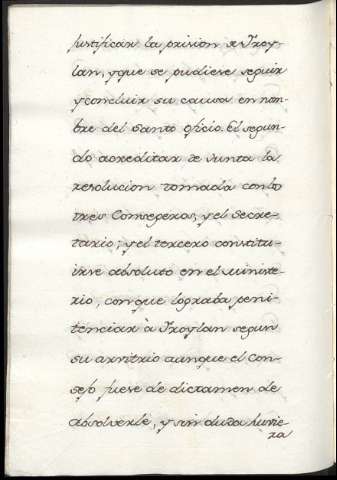 justificar la prision de Froy-
lan, y que se pudiese seguir
y concluir su causa en nom-
bre del Santo oficio. El segun-
do acreditar de Junta la
resolucion tomada con los
tres Consegeros, y el Secre-
tario; y el tercero constitu-
irse absoluto en el ministe-
rio, con que lograba peni-
tenciar à Froylan segun
su arvitrio aunque el Con-
sejo fuese de dictamen de
absolverle, y sin duda huvie-
ra